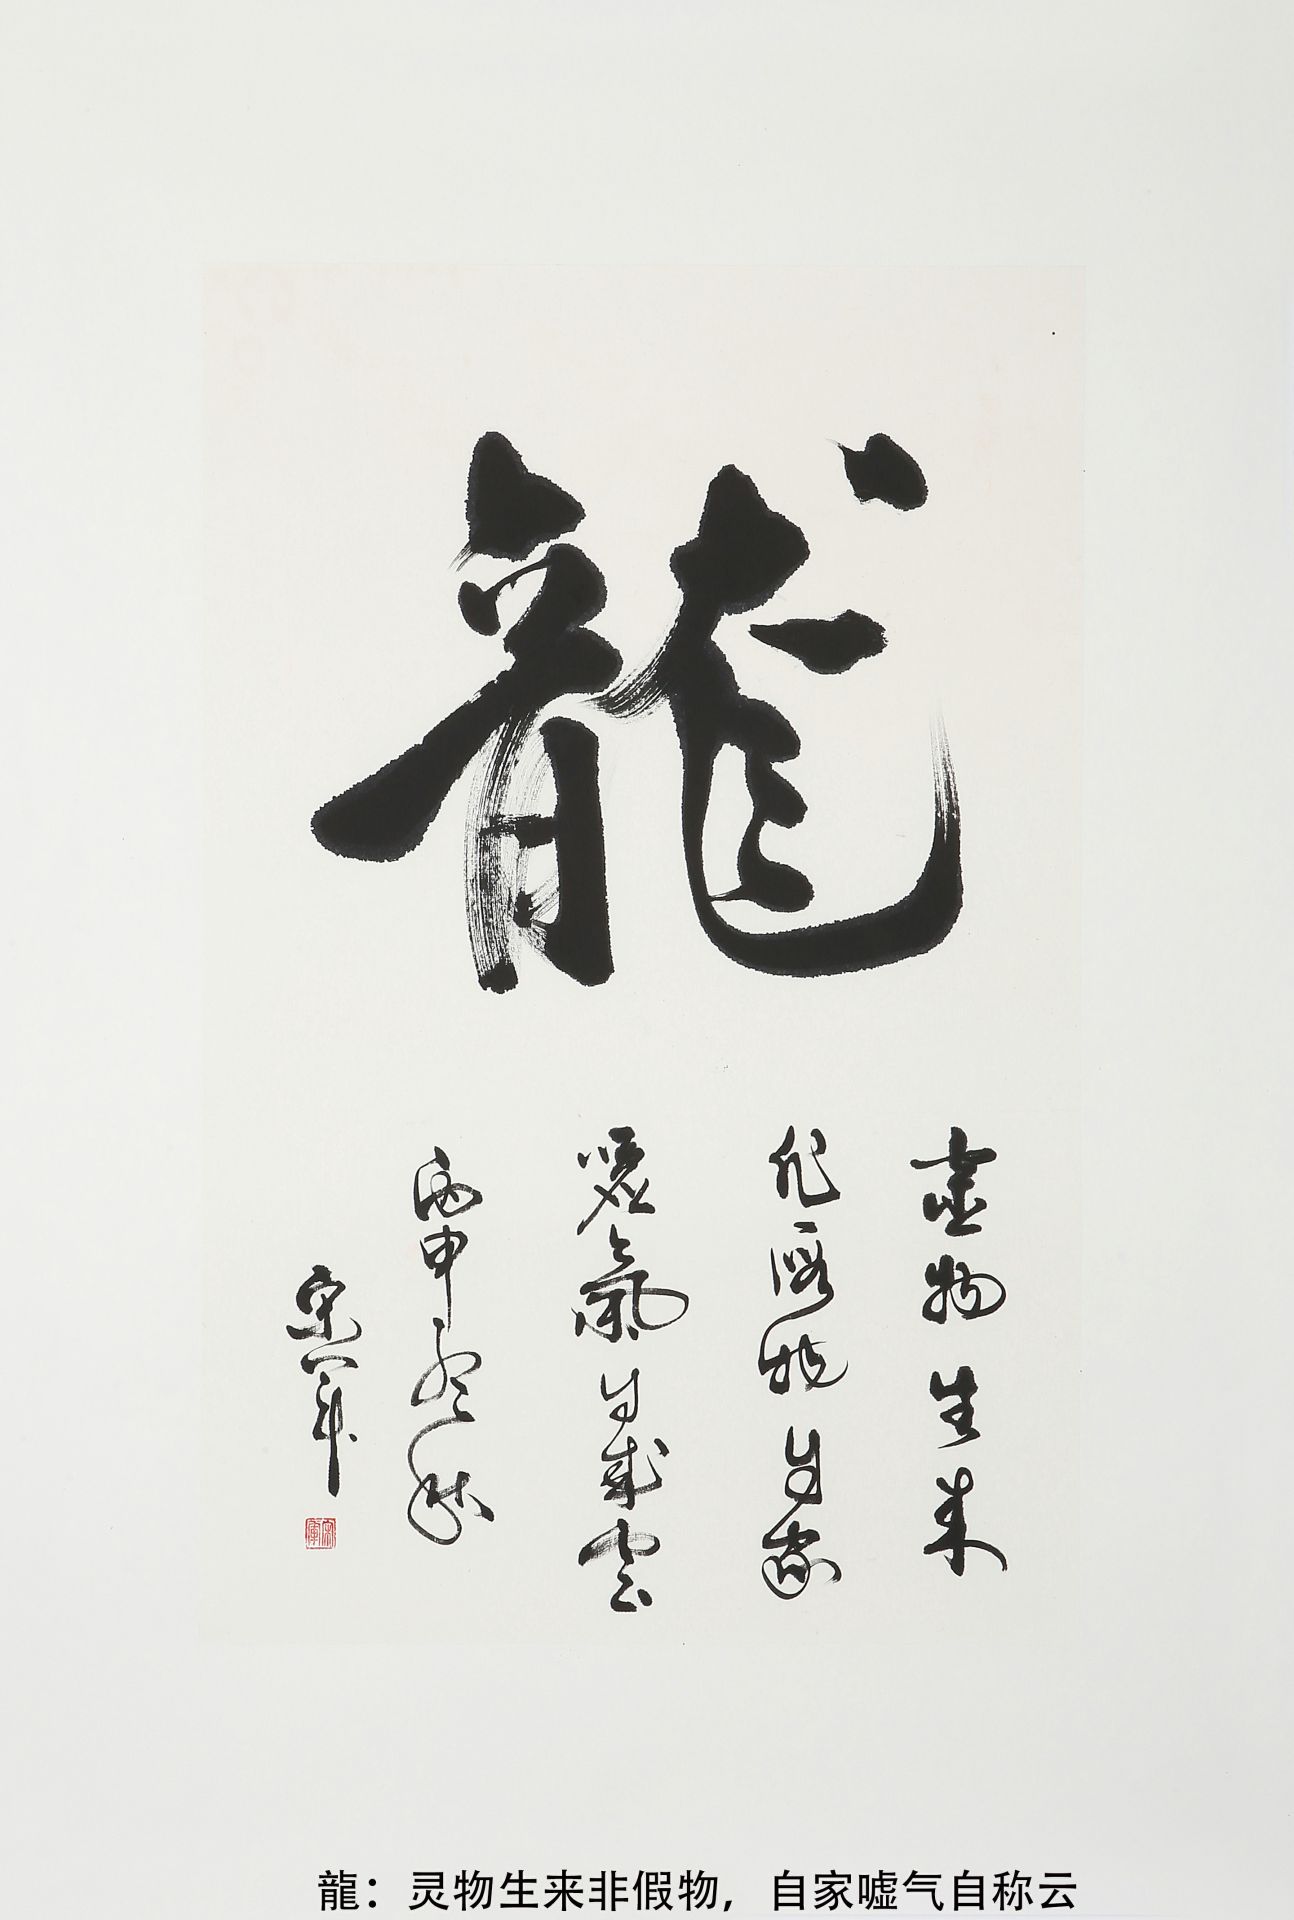 龍
靈物生来
非假物自家
噓氣自成雲
丙申秋
宋军
龍：灵物生来非假物，自家嘘气自称云